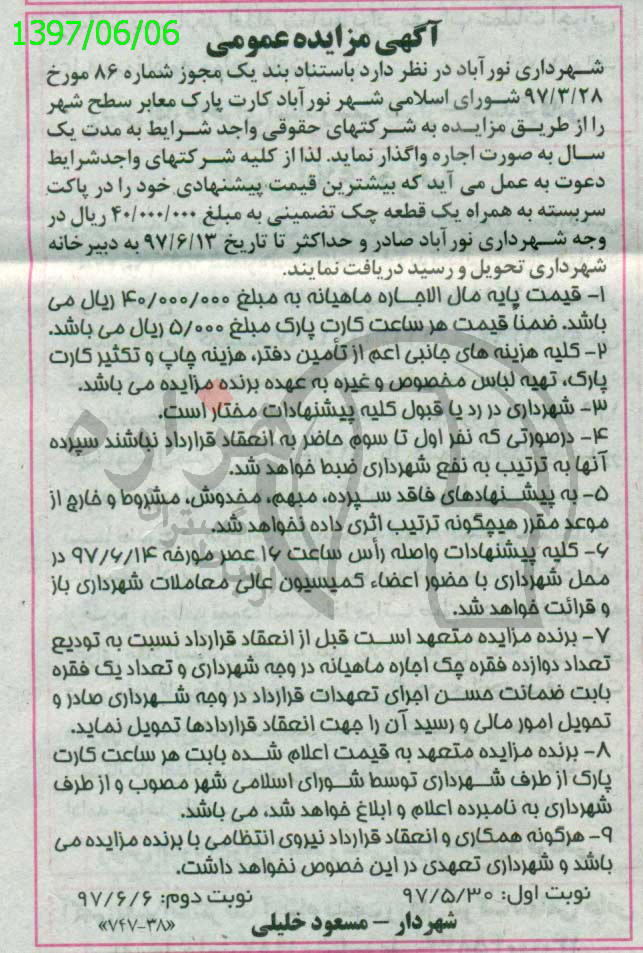 1397/06/06
آگهی مزایده عمومی
شهرداری نورآباد در نظر دارد باستناد بند یک مجوز شماره ۸۶ مورخ
۹۷/۳/۲۸ شورای اسلامی شهر نورآباد کارت پارک معابر سطح شهر
را از طریق مزایده به شرکتهای حقوقی واجد شرایط به مدت یک
سال به صورت اجاره واگذار نماید. لذا از کلیه شرکتهای واجدشرایط
دعوت به عمل می آید که بیشترین قیمت پیشنهادی خود را در پاکت
سربسته به همراه یک قطعه چک تضمینی به مبلغ ۴۰/۰۰۰/۰۰۰ ریال در
وجه شهرداری نورآباد صادر و حداکثر تا تاریخ ۹۷/۶/۱۳ به دبیرخانه
شهرداری تحویل و رسید دریافت نمایند.
۱- قیمت پایه مال الاجاره ماهیانه به مبلغ ۴۰/۰۰۰/۰۰۰ ریال می
باشد. ضمناً قیمت هر ساعت کارت پارک مبلغ ۵/۰۰۰ ریال می باشد.
۲- کلیه هزینه های جانبی اعم از تأمین دفتر، هزینه چاپ و تکثیر کارت
پارک، تهیه لباس مخصوص و غیره به عهده برنده مزایده می باشد.
۳- شهرداری در رد یا قبول کلیه پیشنهادات مختار است.
۴- درصورتی که نفر اول تا سوم حاضر به انعقاد قرارداد نباشند سپرده
آنها به ترتیب به نفع شهرداری ضبط خواهد شد.
۵- به پیشنهادهای فاقد سپرده، مبهم، مخدوش، مشروط و خارج از
موعد مقرر هیچگونه ترتیب اثری داده نخواهد شد.
۶- کلیه پیشنهادات واصله رأس ساعت ۱۶ عصر مورخه ۹۷/۶/۱۴ در
محل شهرداری با حضور اعضاء کمیسیون عالی معاملات شهرداری باز
و قرائت خواهد شد.
۷- برنده مزایده متعهد است قبل از انعقاد قرارداد نسبت به تودیع
تعداد دوازده فقره چک اجاره ماهیانه در وجه شهرداری و تعداد یک فقره
بابت ضمانت حسن اجرای تعهدات قرارداد در وجه شهرداری صادر و
تحویل امور مالی و رسید آن را جهت انعقاد قراردادها تحویل نماید.
۸- برنده مزایده متعهد به قیمت اعلام شده بابت هر ساعت کارت
پارک از طرف شهرداری توسط شورای اسلامی شهر مصوب و از طرف
شهرداری به نامبرده اعلام و ابلاغ خواهد شد، می باشد.
۹- هرگونه همکاری و انعقاد قرارداد نیروی انتظامی با برنده مزایده می
باشد و شهرداری تعهدی در این خصوص نخواهد داشت.
نوبت اول: ۹۷/۵/۳۰ نوبت دوم: ۹۷/۶/۶
شهردار - مسعود خلیلی «۷۴۷-۳۸»
هزاره